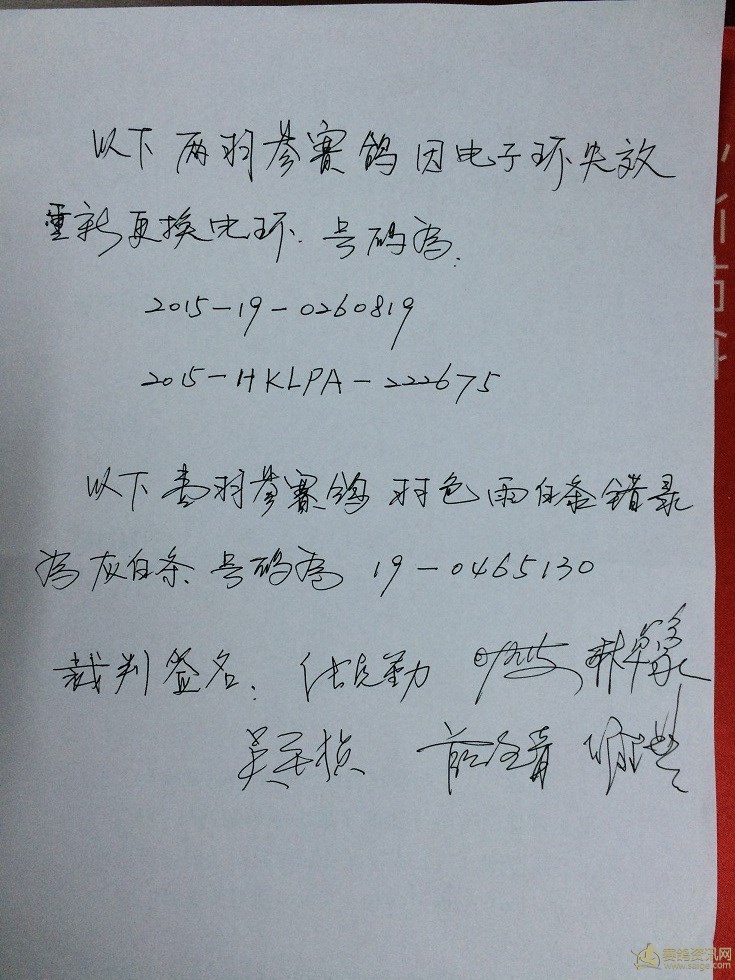 以下两羽参赛鸽因电子环失效
重新更换电环. 号码为:
2015-19-0260819
2015-HKLPA-222675
以下壹羽参赛鸽羽色雨白条错录
为灰白条. 号码为 19-0465130
裁判签名:
赛鸽资讯网
www.saige.com